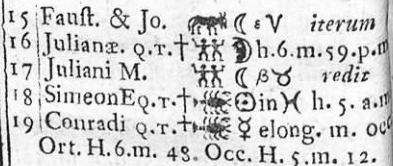 15 Fauſt. & Jo. ♉ ☾ ε ♈ iterum
16 Julianæ. Q.T.† ♊ ☽ h.6.m.59.p.m
17 Juliani M. ♊ ☾ β ♉ redit
18 Simeon E Q.T.† ♋ ☉ in ♓ h. 5. a.m
19 Conradi Q.T.† ♋ ☿ elong. m. occ
Ort. H.6.m. 48. Occ. H. 5.m. 12.